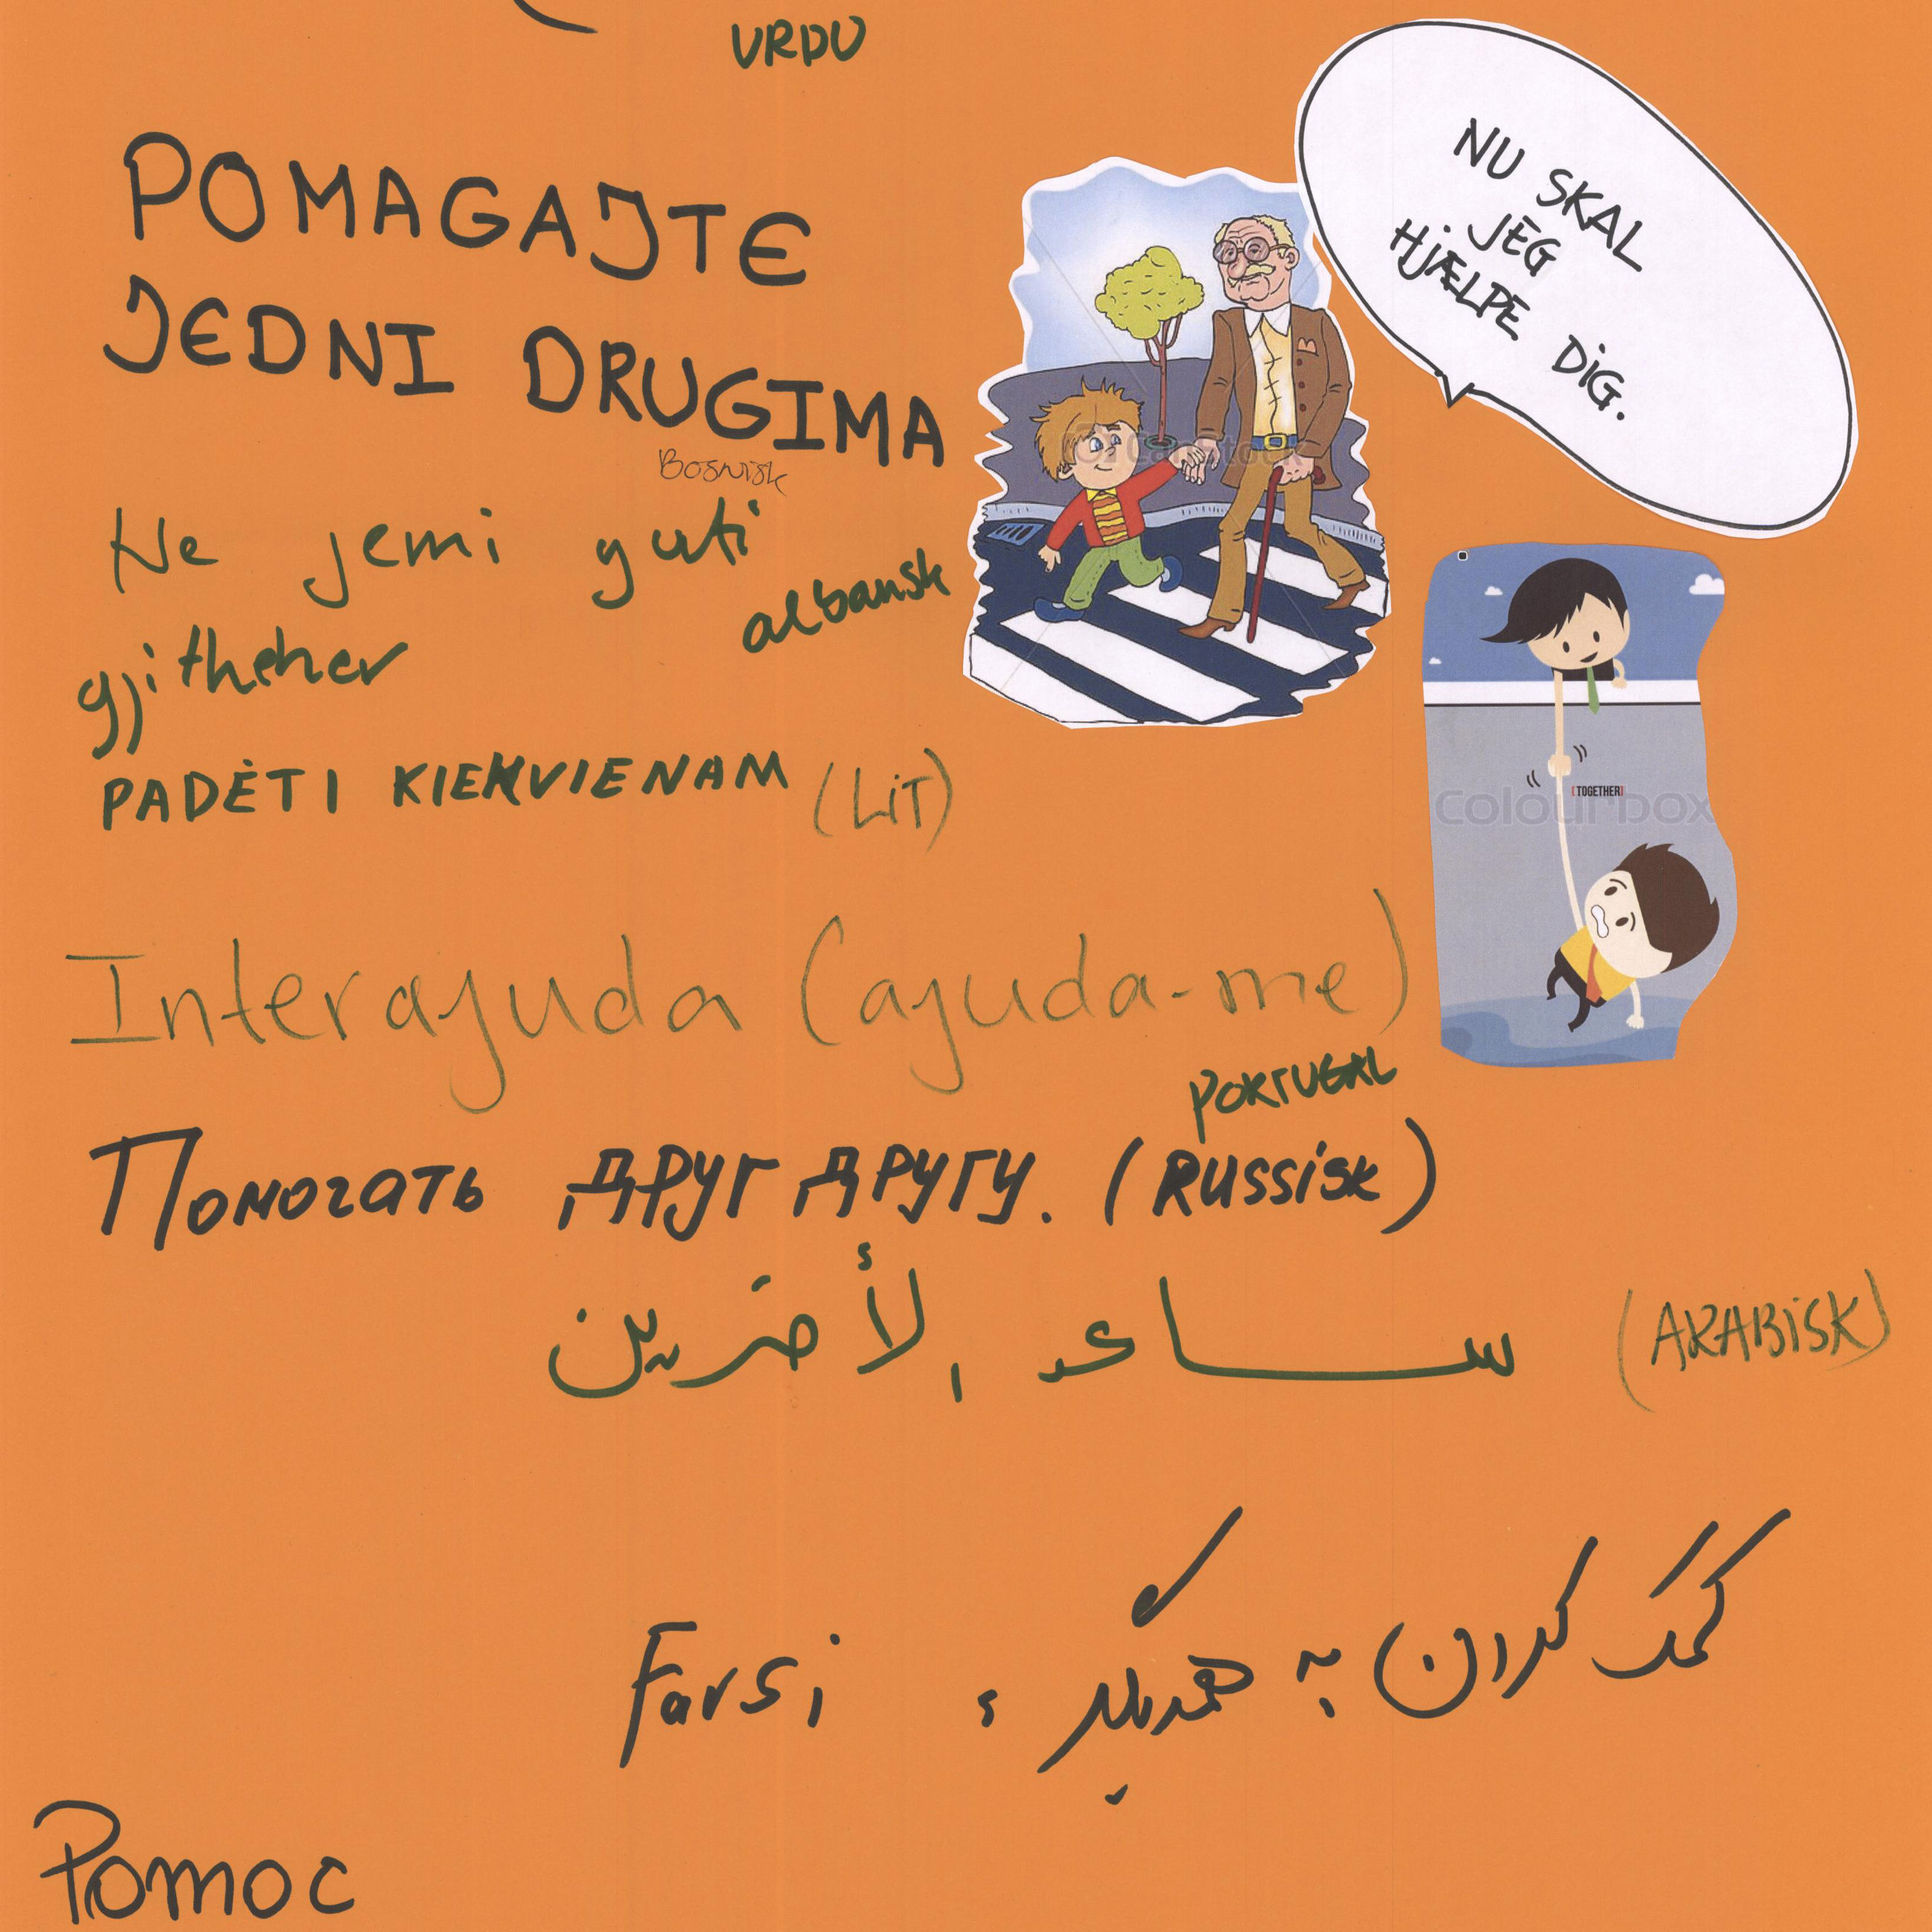 URDU
NU SKAL
JEG
HJÆLPE DIG.
POMAGAJTE
JEDNI DRUGIMA
Bosnisk
Ne jemi yuti
albansk
gjitheher
PADĖTI KIEKVIENAM (LIT)
[TOGETHER]
Colourbox
Interajuda (ajuda-me)
PORTUGAL
Помогать друг другу. (RUSSISK)
ساعد الأخرين (ARABISK)
کمک کردن به همدیگر، Farsi
Pomoc